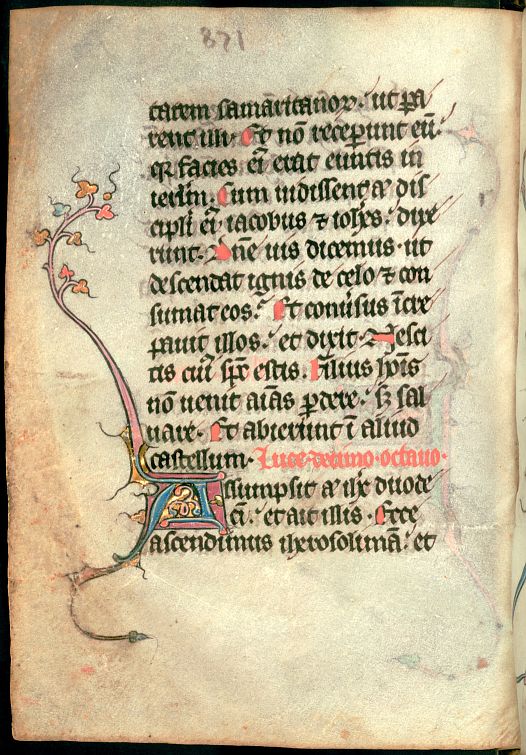 871
tatem samaritanoꝝ. ut pa
rent illi. Et nō receperunt eū.
qꝛ facies eī erat euntis in
ierlm̄. Cum uidissent aͧ dis
cipli eī iacobus ⁊ ioħes. dixe
runt. Dn̄e uis dicemus. ut
descendat ignis de celo ⁊ con
sumat eos. Et conuersus īcre
pauit illos. et dixit. Nesci
tis cuī sp̄c estis. Filius hoīs
nō uenit aīas ꝑdere. sꝫ sal
uare. Et abierunt ī aliud
castellum. Luce decimo octauo.
Assumpsit aͧ iħc duode
cī. et ait illis. Ecce
ascendimus iherosolimā. et